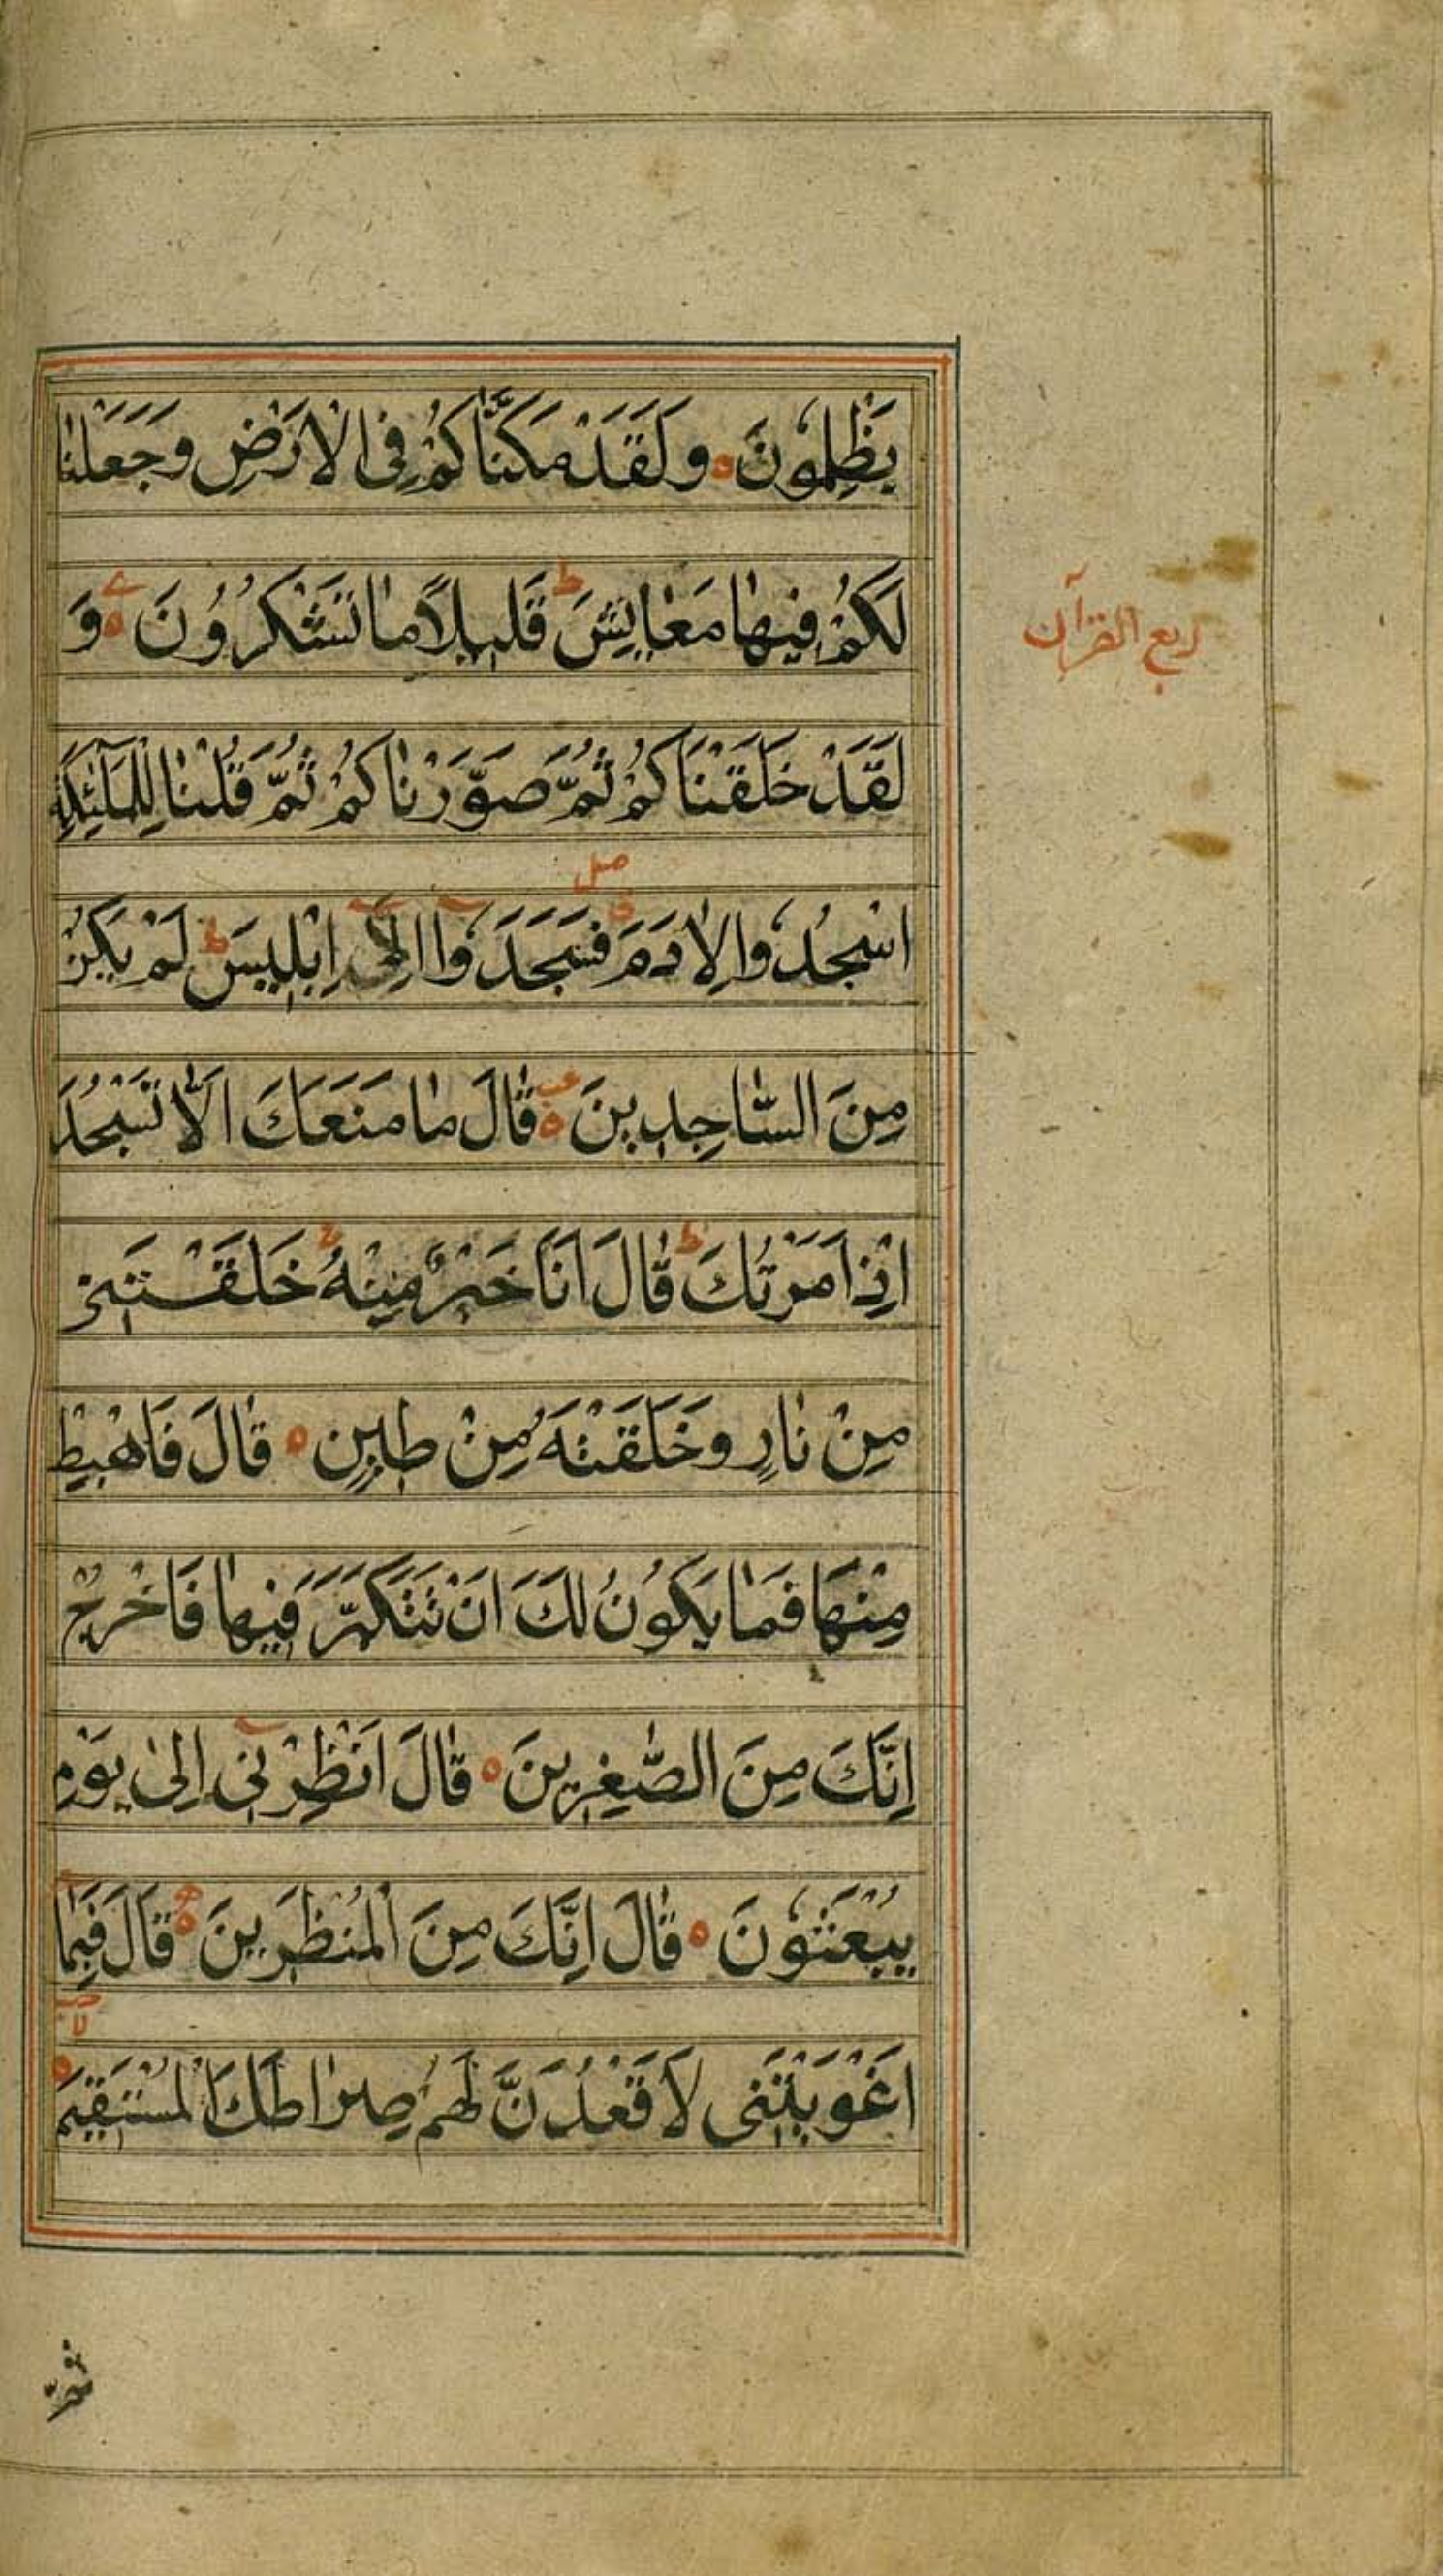 يَظْلِمُونَ ۝ وَلَقَدْ مَكَّنَّاكُمْ فِی الْاَرْضِ وَجَعَلْنَا
لَكُمْ فِيهَا مَعَايِشَ ؕ قَلِيلًا مَا تَشْكُرُونَ ۝ وَ
لَقَدْ خَلَقْنَاكُمْ ثُمَّ صَوَّرْنَاكُمْ ثُمَّ قُلْنَا لِلْمَلٰٓئِكَةِ
اسْجُدُوا لِاٰدَمَ فَسَجَدَوٓا اِلَّآ اِبْلِيسَ ؕ لَمْ يَكُنْ
مِنَ السَّاجِدِينَ ۝ قَالَ مَا مَنَعَكَ اَلَّا تَسْجُدَ
اِذْ اَمَرْتُكَ ؕ قَالَ اَنَا خَيْرٌ مِنْهُ ۚ خَلَقْتَنِی
مِنْ نَارٍ وَخَلَقْتَهُ مِنْ طِينٍ ۝ قَالَ فَاهْبِطْ
مِنْهَا فَمَا يَكُونُ لَكَ اَنْ تَتَكَبَّرَ فِيهَا فَاخْرُجْ
اِنَّكَ مِنَ الصّٰغِرِينَ ۝ قَالَ اَنْظِرْنِیٓ اِلٰى يَوْمِ
يُبْعَثُونَ ۝ قَالَ اِنَّكَ مِنَ الْمُنْظَرِينَ ۝ قَالَ فَبِمَا
اَغْوَيْتَنِی لَاَقْعُدَنَّ لَهُمْ صِرَاطَكَ الْمُسْتَقِيمَ ۝
ربع القرآن
ثُمَّ